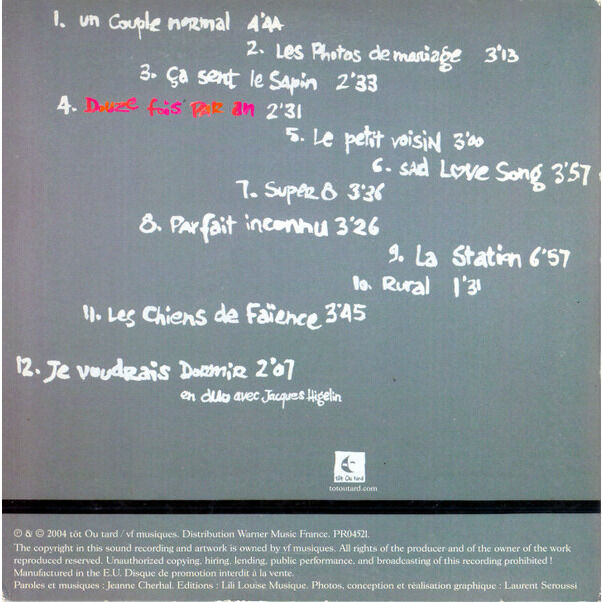 1. un Couple normal 4'44
2. Les Photos de mariage 3'13
3. Ça sent le Sapin 2'33
4. Douze fois par an 2'31
5. Le petit voisin 3'00
6. Sad Love Song 3'57
7. Super 8 3'36
8. Parfait inconnu 3'26
9. La Station 6'57
10. Rural 1'31
11. Les Chiens de Faïence 3'45
12. Je voudrais Dormir 2'07
en duo avec Jacques Higelin
tôt Ou tard
totoutard.com
℗ & © 2004 tôt Ou tard / vf musiques. Distribution Warner Music France. PR04521.
The copyright in this sound recording and artwork is owned by vf musiques. All rights of the producer and of the owner of the work
reproduced reserved. Unauthorized copying, hiring, lending, public performance, and broadcasting of this recording prohibited !
Manufactured in the E.U. Disque de promotion interdit à la vente.
Paroles et musiques : Jeanne Cherhal. Editions : Lili Louise Musique. Photos, conception et réalisation graphique : Laurent Seroussi